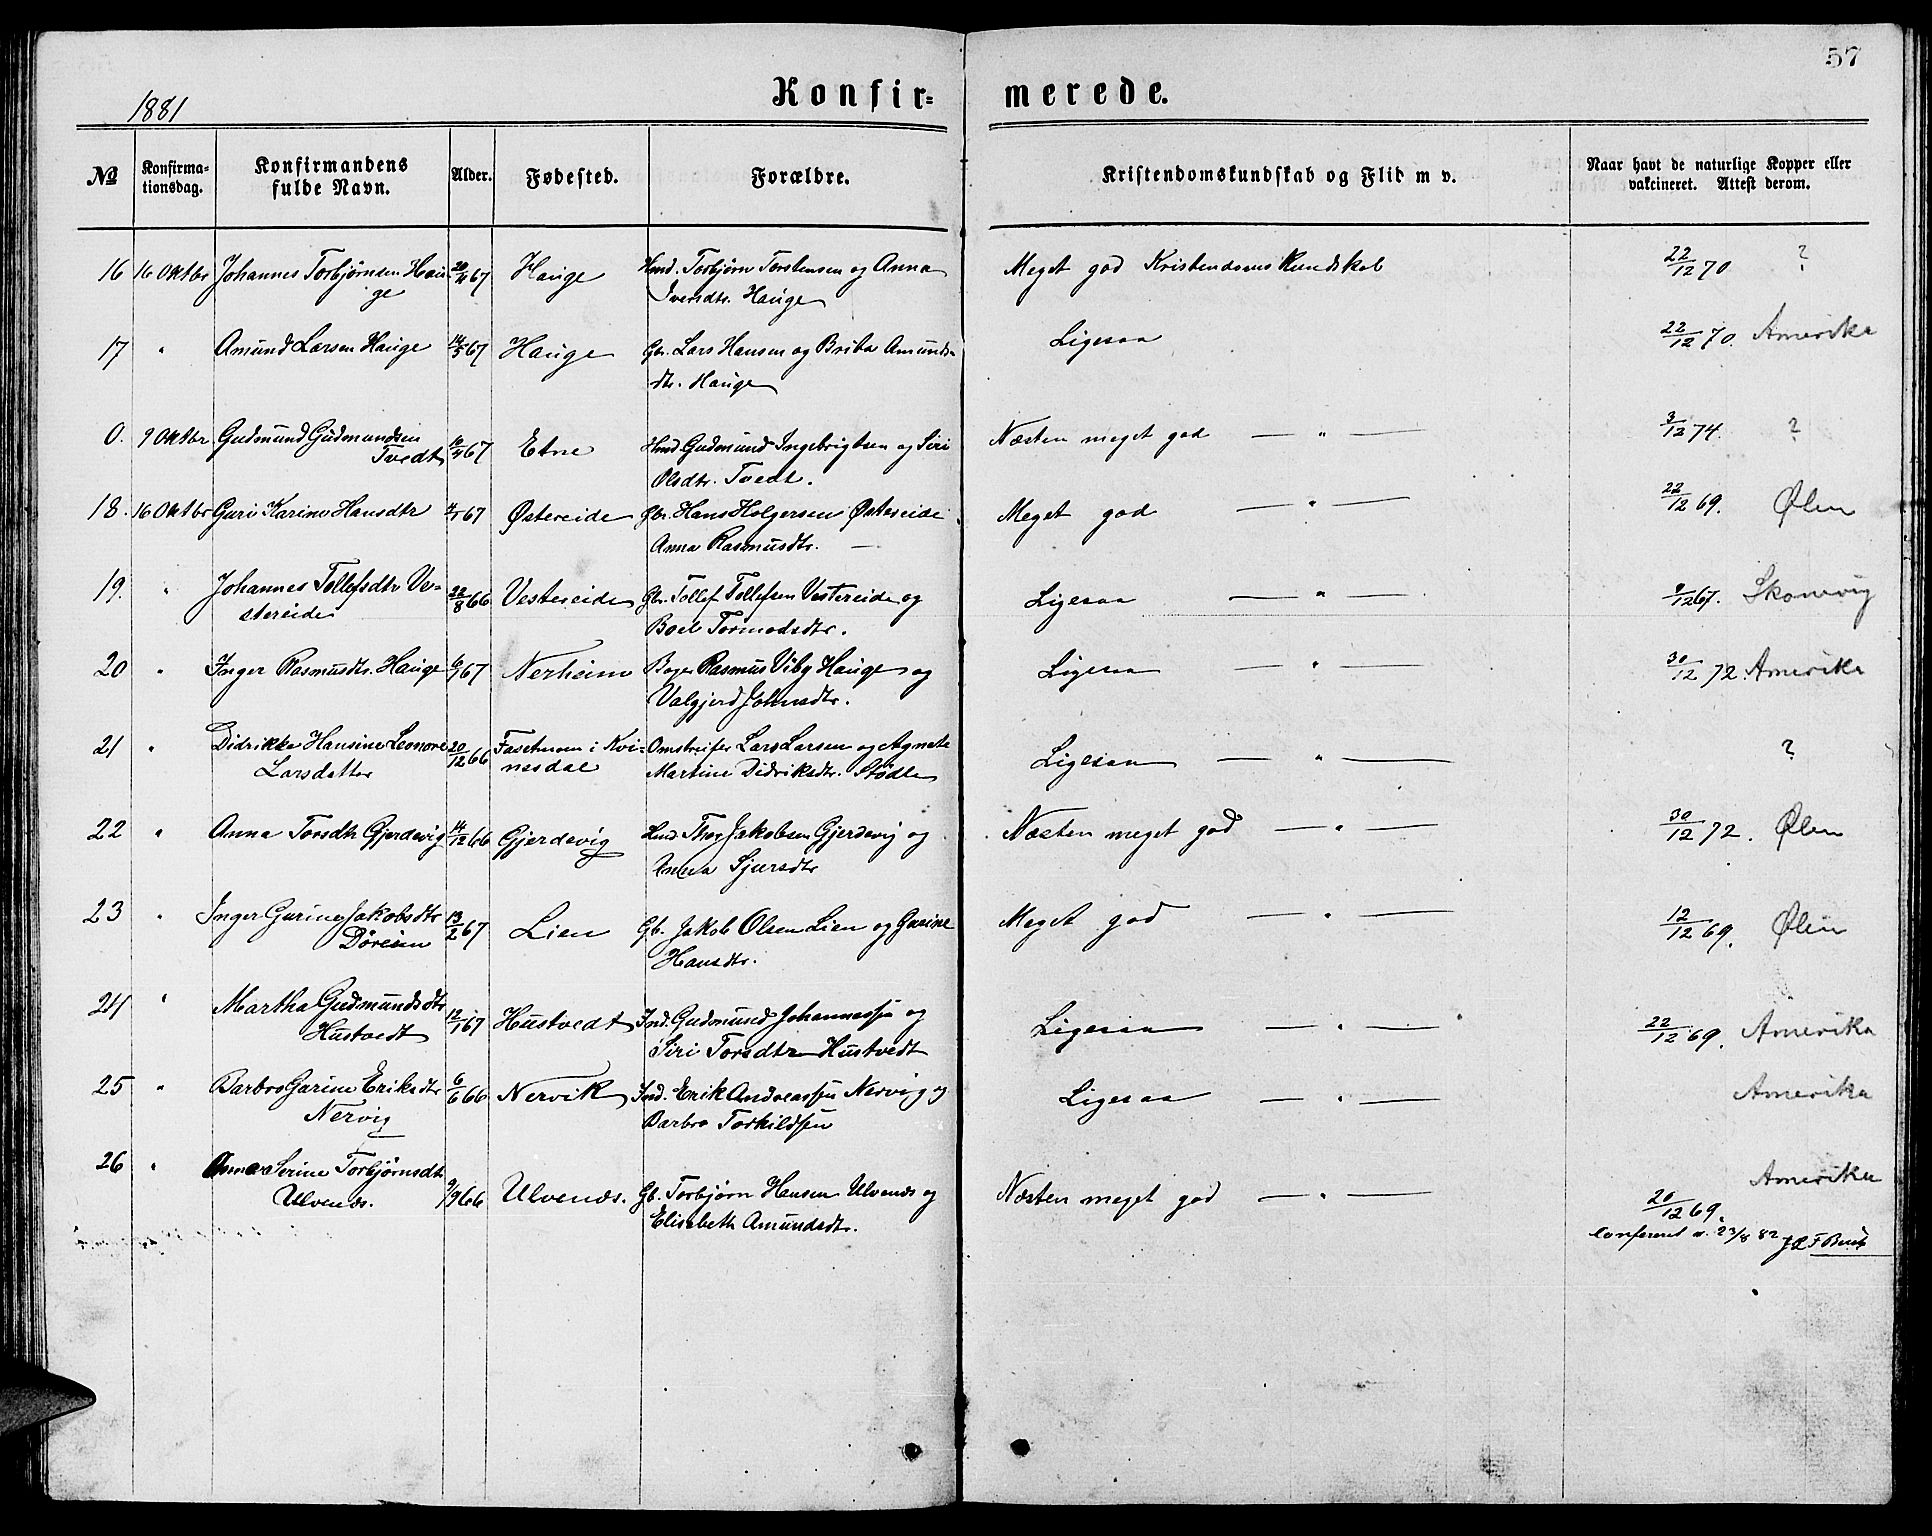 57
1881
Konfir=
merede.
№ Konfirma-
tionsdag. Konfirmandens
fulde Navn. Alder. Fødested. Forældre. Kristendomskundskab og Flid m v. Naar havt de naturlige Kopper eller
vakcineret. Attest derom.
16 16 Oktbr Johannes Torbjørnsen Hau- 67 Hauge Hmd. Torbjørn Torstensen og Anna Meget god Kristendomskundskab 22/12 70 ?
ge Iversdtr. Hauge
17 " Amund Larsen Hauge 14/5 67 Hauge Gbr. Lars Hansen og Brita Amunds- Ligesaa 22/12 70. Amerika
dtr. Hauge
0. 9 Oktbr. Gudmund Gudmundsen 67 Etne Hmd Gudmund Ingebrigtsen og Siri Næsten meget god — " — 3/12 74. ?
Tvedt Olsdtr. Tvedt.
18. 16 Oktbr Guri Karine Hansdtr 67 Østereide Gbr. Hans Holgersen Østereide Meget god — " — 22/12 69. Ølen
Anna Rasmusdtr. —
19 " Johannes Tollefsdtr Ve- 22/8 66 Vestereide Gbr. Tollef Tollefsen Vestereide og Ligesaa — " — 9/12 67. Skonevig
stereide Boel Tormodsdtr.
20 " Inger Rasmusdtr. Hauge 67 Nerheim Rasmus Viby Hauge og Ligesaa — " — 30/12 72. Amerika
Valgjerd Johnsdtr.
21 " Didrikke Hansine Leonore 20/12 66 i Kvi- Omstreifer Lars Larsen og Agnate Ligesaa — " — ?
Larsdatter nesdal Martine Didriksdtr. Stødle
22 " Anna Torsdtr Gjerdevig 14/12 66 Gjerdevig Hmd. Thor Jakobsen Gjerdevig og Næsten meget god — " — 30/12 72. Ølen
Anna Sjursdtr
23 " Inger Gurine Jakobsdtr 13/2 67 Lien Gb. Jakob Olsen Lien og Gurine Meget god — " — 12/12 69. Ølen
Døreim Hansdtr.
24 " Martha Gudmundsdtr 12/1 67 Hustvedt Ind. Gudmund Johannessen og Ligesaa — " — 22/12 69. Amerika
Hustvedt Siri Torsdtr Hustvedt
25 " Barbro Garine Eriksdtr 6/6 66 Nervik Ind. Erik Andreassen Nervig og Ligesaa — " — Amerika
Nervig Barbro Torkildsen
26 " Anna Serine Torbjørnsdtr 9/9 66 Ulvenes. Gb. Torbjørn Hansen Ulvenes og Næsten meget god — " — Amerika
Ulvenes. Elisabeth Amundsdtr. 20/12 69.
Confereret d. 23/8 82